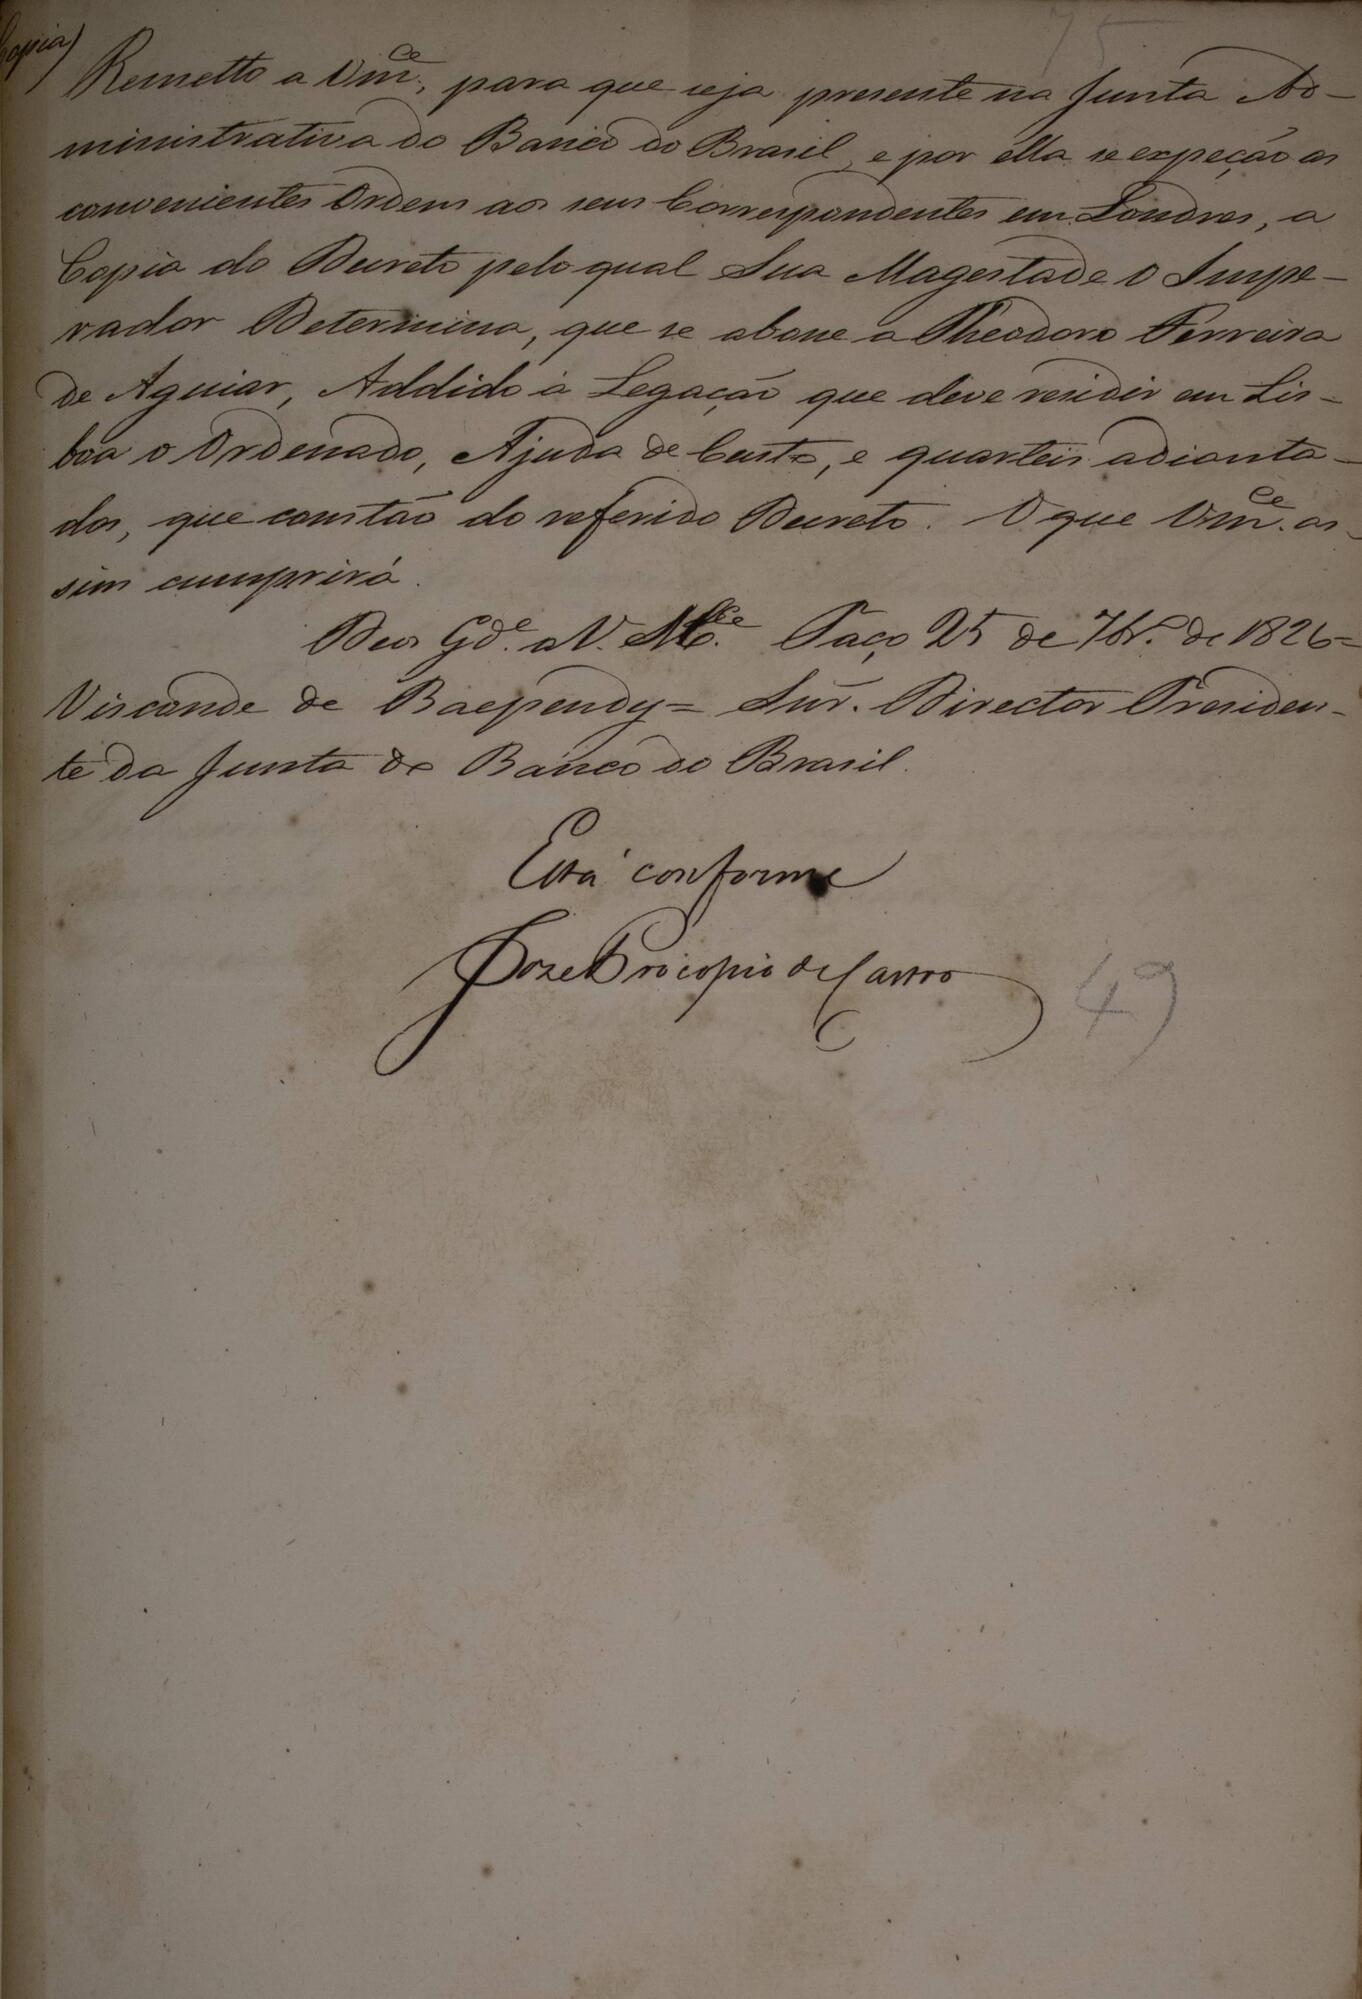 Copia)
75
Remetto a Vm.ce, para que seja presente na Junta Ad-
ministrativa do Banco do Brasil, e por ella se expeção as
convenientes Ordens aos seus Correspondentes em Londres, a
Copia do Decreto pelo qual Sua Magestade O Impe-
rador Determina, que se abone a Theodoro Ferreira
de Aguiar, Addido á Legação que deve residir em Lis-
boa o Ordenado, Ajuda de Custo, e quarteis adianta-
dos, que constão do referido Decreto. O que Vm.ce as-
sim cumprirá.
Deos G.de a V. M.ce Paço 25 de 7br.o de 1826=
Visconde de Baependy= Snr. Director Presiden-
te da Junta do Banco do Brasil.
Está conforme
Joze Procopio de Castro
49